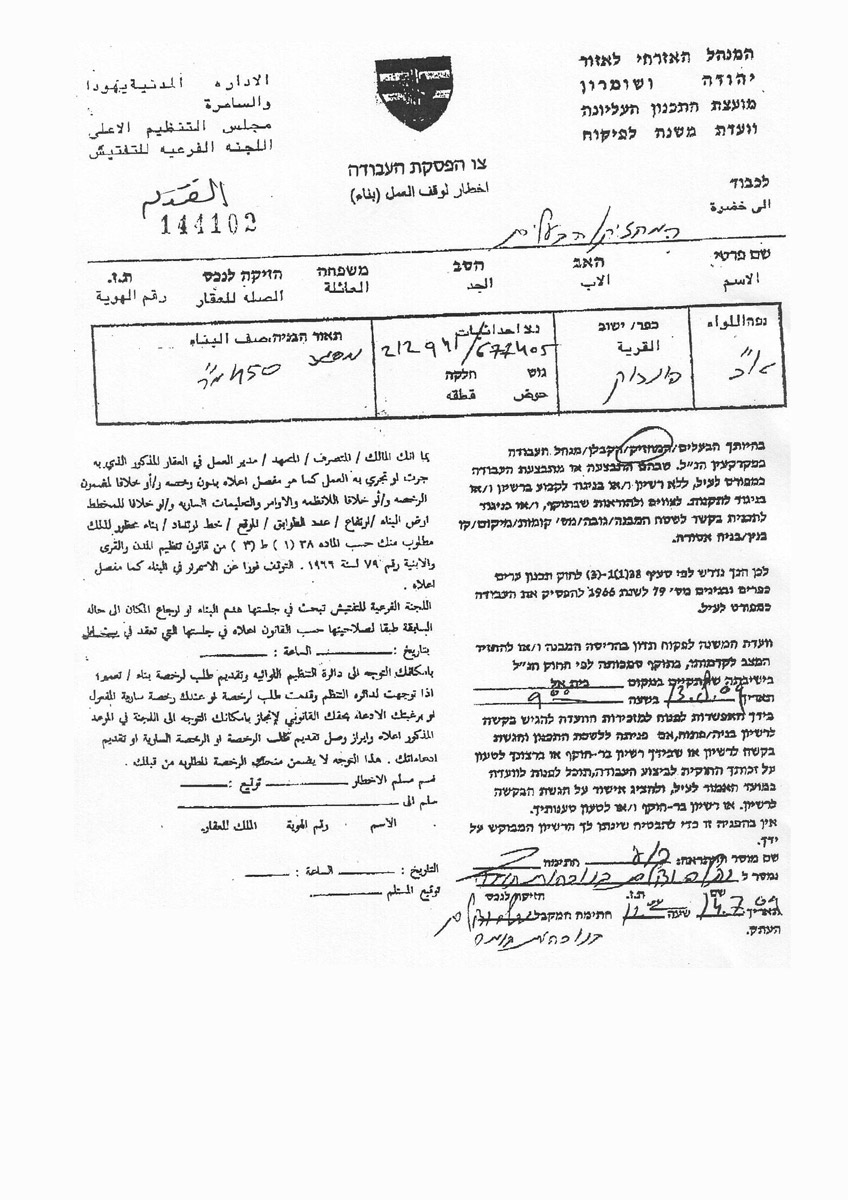 המנהל האזרחי לאזור
יהודה ושומרון
מועצת התכנון העליונה
וועדת משנה לפיקוח
الاداره المدنية يهودا
والسامرة
مجلس التنظيم الاعلى
اللجنه الفرعيه للتفتيش
144102
צו הפסקת העבודה
اخطار لوقف العمل (بناء)
לכבוד
الى خضرة
המחזיק/הבעלים
שם פרטי האב הסב משפחה הזיקה לנכס ת.ז.
الاسم الاب الجد العائلة الصله للعقار رقم الهوية
נפה اللواء
כפר/ ישוב
القرية
נצ אחדוטיות
212941/677405
גוש חלקה
حوض قطعه
תאור הבניה وصف البناء
450 מ"ר
בהיותך הבעלים/המחזיק/הקבלן/מנהל העבודה
במקרקעין הנ"ל. שבהם התבצעה או מתבצעת העבודה
כמפורט לעיל, ללא רשיון ו/או בניגוד לקבוע ברשיון ו/או
בניגוד לתקנות. לצווים ולהוראות שבתוקף, ו/או בניגוד
לתכנית בקשר לשטח המבנה/גובה/מס' קומות/מיקום/קו
בנין/בניה אסורה.
לכן הנך נדרש לפי סעיף 38(1)-(3) לחוק תכנון ערים
כפרים ובנינים מס' 79 לשנת 1966 להפסיק את העבודה
כמפורט לעיל.
וועדת המשנה לפקוח תדון בהריסה המבנה ו/או להחזיר
המצב לקדמותו, בתוקף סמכותה לפי החוק הנ"ל
בישיבתה שתתקיים במקום בית אל
תאריך בשעה 9 00
בידך האפשרות לפנות למזכירות הוועדה להגיש בקשה
לרשיון בניה/פתוח, אם פניתה ללשכת התכנון והגשת
בקשה לרשיון או שבידך רשיון בר-תוקף או ברצונך לטעון
על זכותך החוקית לביצוע העבודה, תוכל לפנות לוועדה
במועד האמור לעיל, ולהציג אישור על הגשת הבקשה
לרשיון. או רשיון בר-תוקף ו/או לטעון טענותיך.
אין בהפניה זו כדי להבטיח שינתן לך הרשיון המבוקש על
ידך.
שם מוסר ההתראה: חתימה
נמסר ל
שם ת.ז. הזיקה לנכס
תאריך שעה חתימת המקבל
העתק.
بما انك المالك / المتصرف / المتعهد / مدير العمل في العقار المذكور الذي به
جرت او تجري به العمل كما هو مفصل اعلاه بدون رخصه و/او خلافا لمضمون
الرخصه و/او خلافا للانظمه والاوامر والتعليمات الساريه و/او خلافا للمخطط
ارض البناء /ارتفاع / عدد الطوابق / الموقع / خط ارتداد / بناء محظور لذلك
مطلوب منك حسب الماده ٣٨ ( ١ ) ط ( ٣ ) من قانون تنظيم المدن والقرى
والابنية رقم ٧٩ لسنة ١٩٦٦ . التوقف فورا عن الاستمرار في البناء كما مفصل
اعلاه .
اللجنة الفرعية للتفتيش تبحث في جلستها هدم البناء او لرجاع المكان الى حاله
السابقة طبقا لصلاحيتها حسب القانون اعلاه في جلستها التي تعقد في
بتاريخ : الساعة :
بامكانك التوجه الى دائرة التنظيم اللوائيه وتقديم طلب لرخصة بناء / تعمير؛
اذا توجهت لدائره التنظم وقدمت طلب لرخصة لو عندك رخصة سارية المفعول
لو برغبتك الادعاء بحقك القانوني لإنجاز بامكانك التوجه الى اللجنة في الموعد
المذكور اعلاه وابراز وصل تقديم طلب الرخصة او الرخصة السارية او تقديم
ادعاءاتك . هذا التوجه لا يضمن منحك الرخصة المطلوبه من قبلك .
قسم مسلم الاخطار توقيع :
سلم الى
الاسم رقم الهوية الملك للعقار.
التاريخ : الساعة :
توقيع المستلم